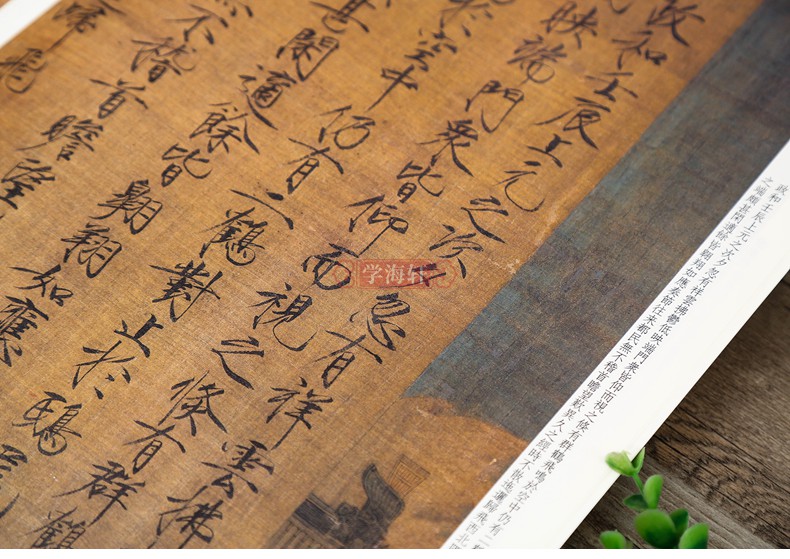 政和壬辰上元之次夕忽有祥雲拂
映端門衆皆仰而視之倏有群鶴
於空中仍有二鶴對止於鴟尾
甚閑適餘皆翱翔如應
無不稽首瞻望
歸飛
学海轩
政和壬辰上元之次夕忽有祥雲拂鬱低映端門衆皆仰而視之倏有群鶴飛鳴於空中仍有二
之端頗甚閑適餘皆翱翔如應奏節往來都民無不稽首瞻望歎異久之經時不散迤邐歸飛西北